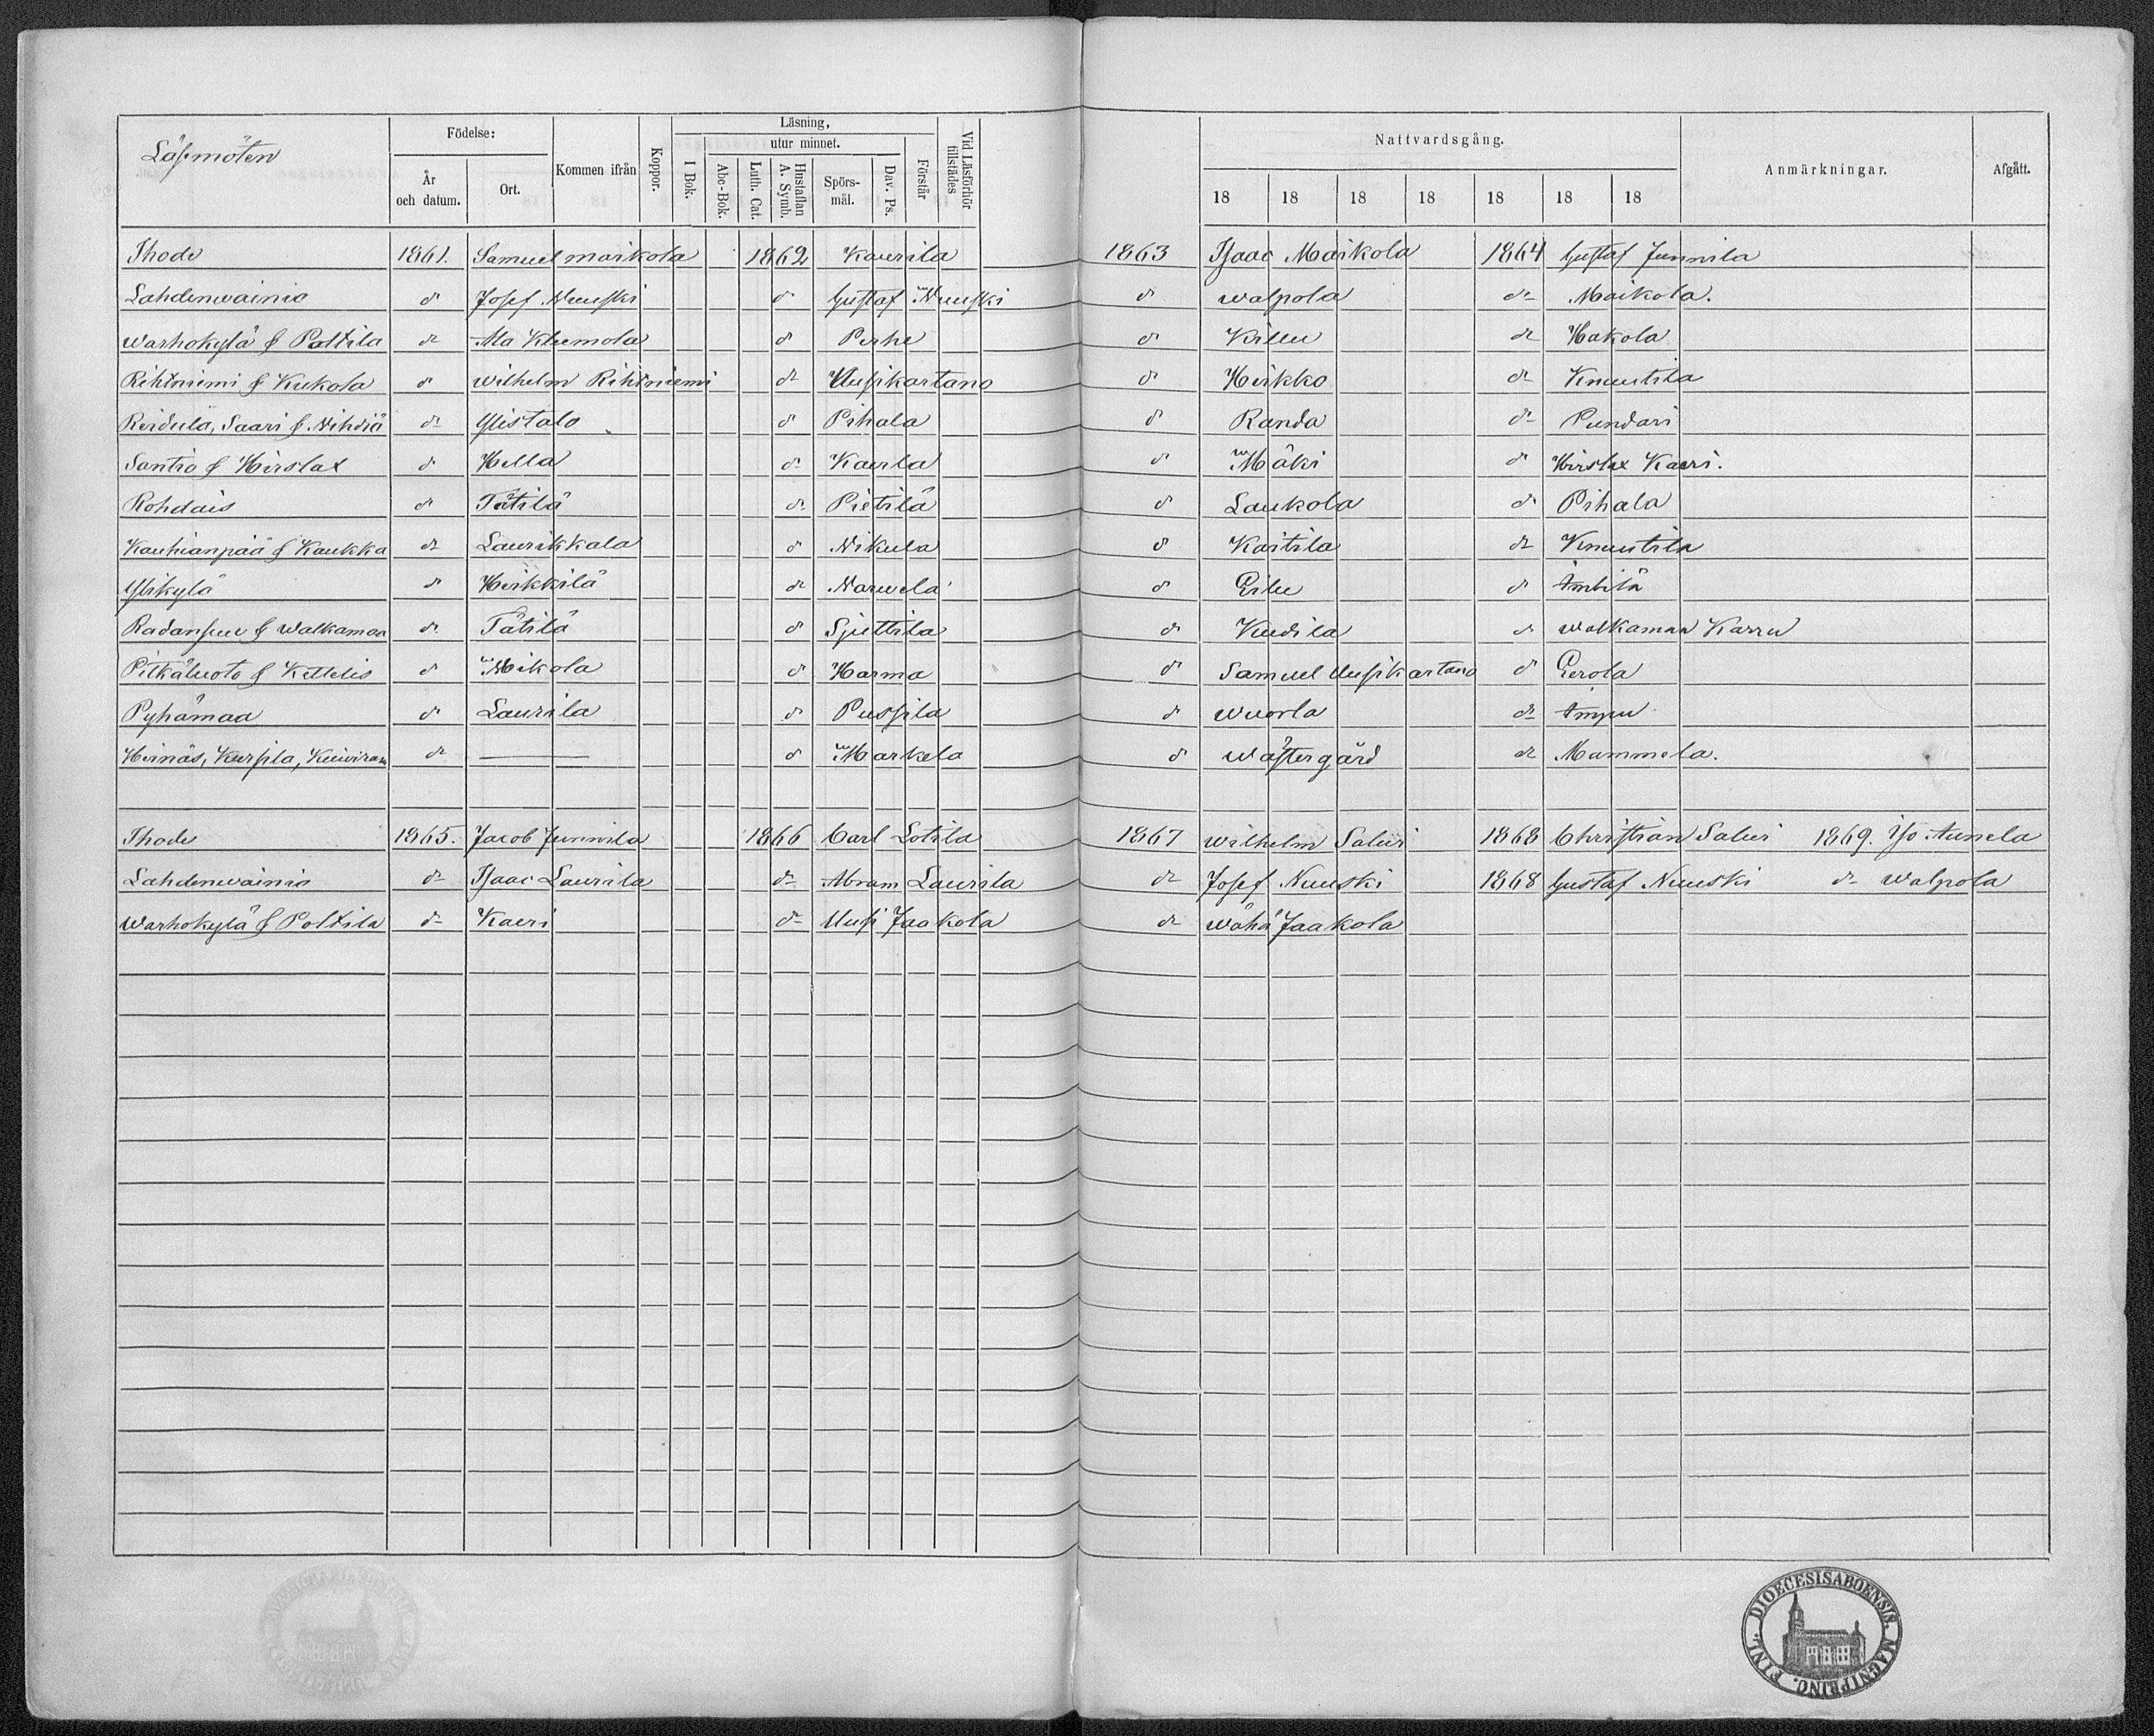 Läsmöten
Födelse:
År och datum.
Ort.
Kommen ifrån
Koppor.
Läsning,
I Bok.
utur minnet.
Abc-Bok.
Luth. Cat.
Hustaflan A. Symb.
Spörs-mål.
Dav. Ps.
Förstår
Vid Läsförhör tillstädes
Nattvardsgång.
18 18 18 18 18 18 18
Anmärkningar.
Afgått.
Ihode 1861. Samuel Maikola 1862 Kaurila 1863 Isaac Maikola 1864 Gustaf Junnila
Lahdenwainio d:o Josef Nuuski d:o Gustaf Nuuski d:o Walpola d:o Maikola.
Warhokylä & Polttila d:o Ala Kleemola d:o Perhe d:o Killu d:o Hakola
Rihtniemi & Kukola d:o Wilhelm Rihtniemi d:o Uusikartano d:o Heikko d:o Knuutila
Reidula, Saari & Nihdiä d:o Ylistalo d:o Pihala d:o Randa d:o Pundari
Santio & Hirslax d:o Hella d:o Kaurla d:o Mäki d:o Hirslax Kaeri.
Rohdais d:o Tätilä d:o Pietilä d:o Laukola d:o Pihala
Kauhianpää & Kaukka d:o Laurikkala d:o Nikula d:o Kaitila d:o Knuutila
Ylikylä d:o Heikkilä d:o Narwela d:o Eilu d:o Imbilä
Radansuu & Walkamaa d:o Tätilä d:o Sjuttila d:o Kudila d:o Walkamaa Karru
Pitkäluoto & Kettelis d:o Mikola d:o Harma d:o Samuel Uusikartano d:o Eerola
Pyhämaa d:o Laurila d:o Pussila d:o Wuorla d:o Impu
Heinäs, Kursila, d:o — d:o Markela d:o Wästergård d:o Mammela.
Ihode 1865. Jacob Junnila 1866 Carl Lotila 1867 Wilhelm Salui 1868 Christian Salui 1869. Iso Aunela
Lahdenwainio d:o Isaac Laurila d:o Abram Laurila d:o Josef Nuuski 1868 Gustaf Nuuski d:o Walpola
Warhokylä & Polttila d:o Kaeri d:o Uusi Jaakola d:o Wähä Jaakola
FINL. DIOECESIS ABOENSIS. MAGNI PRINC.